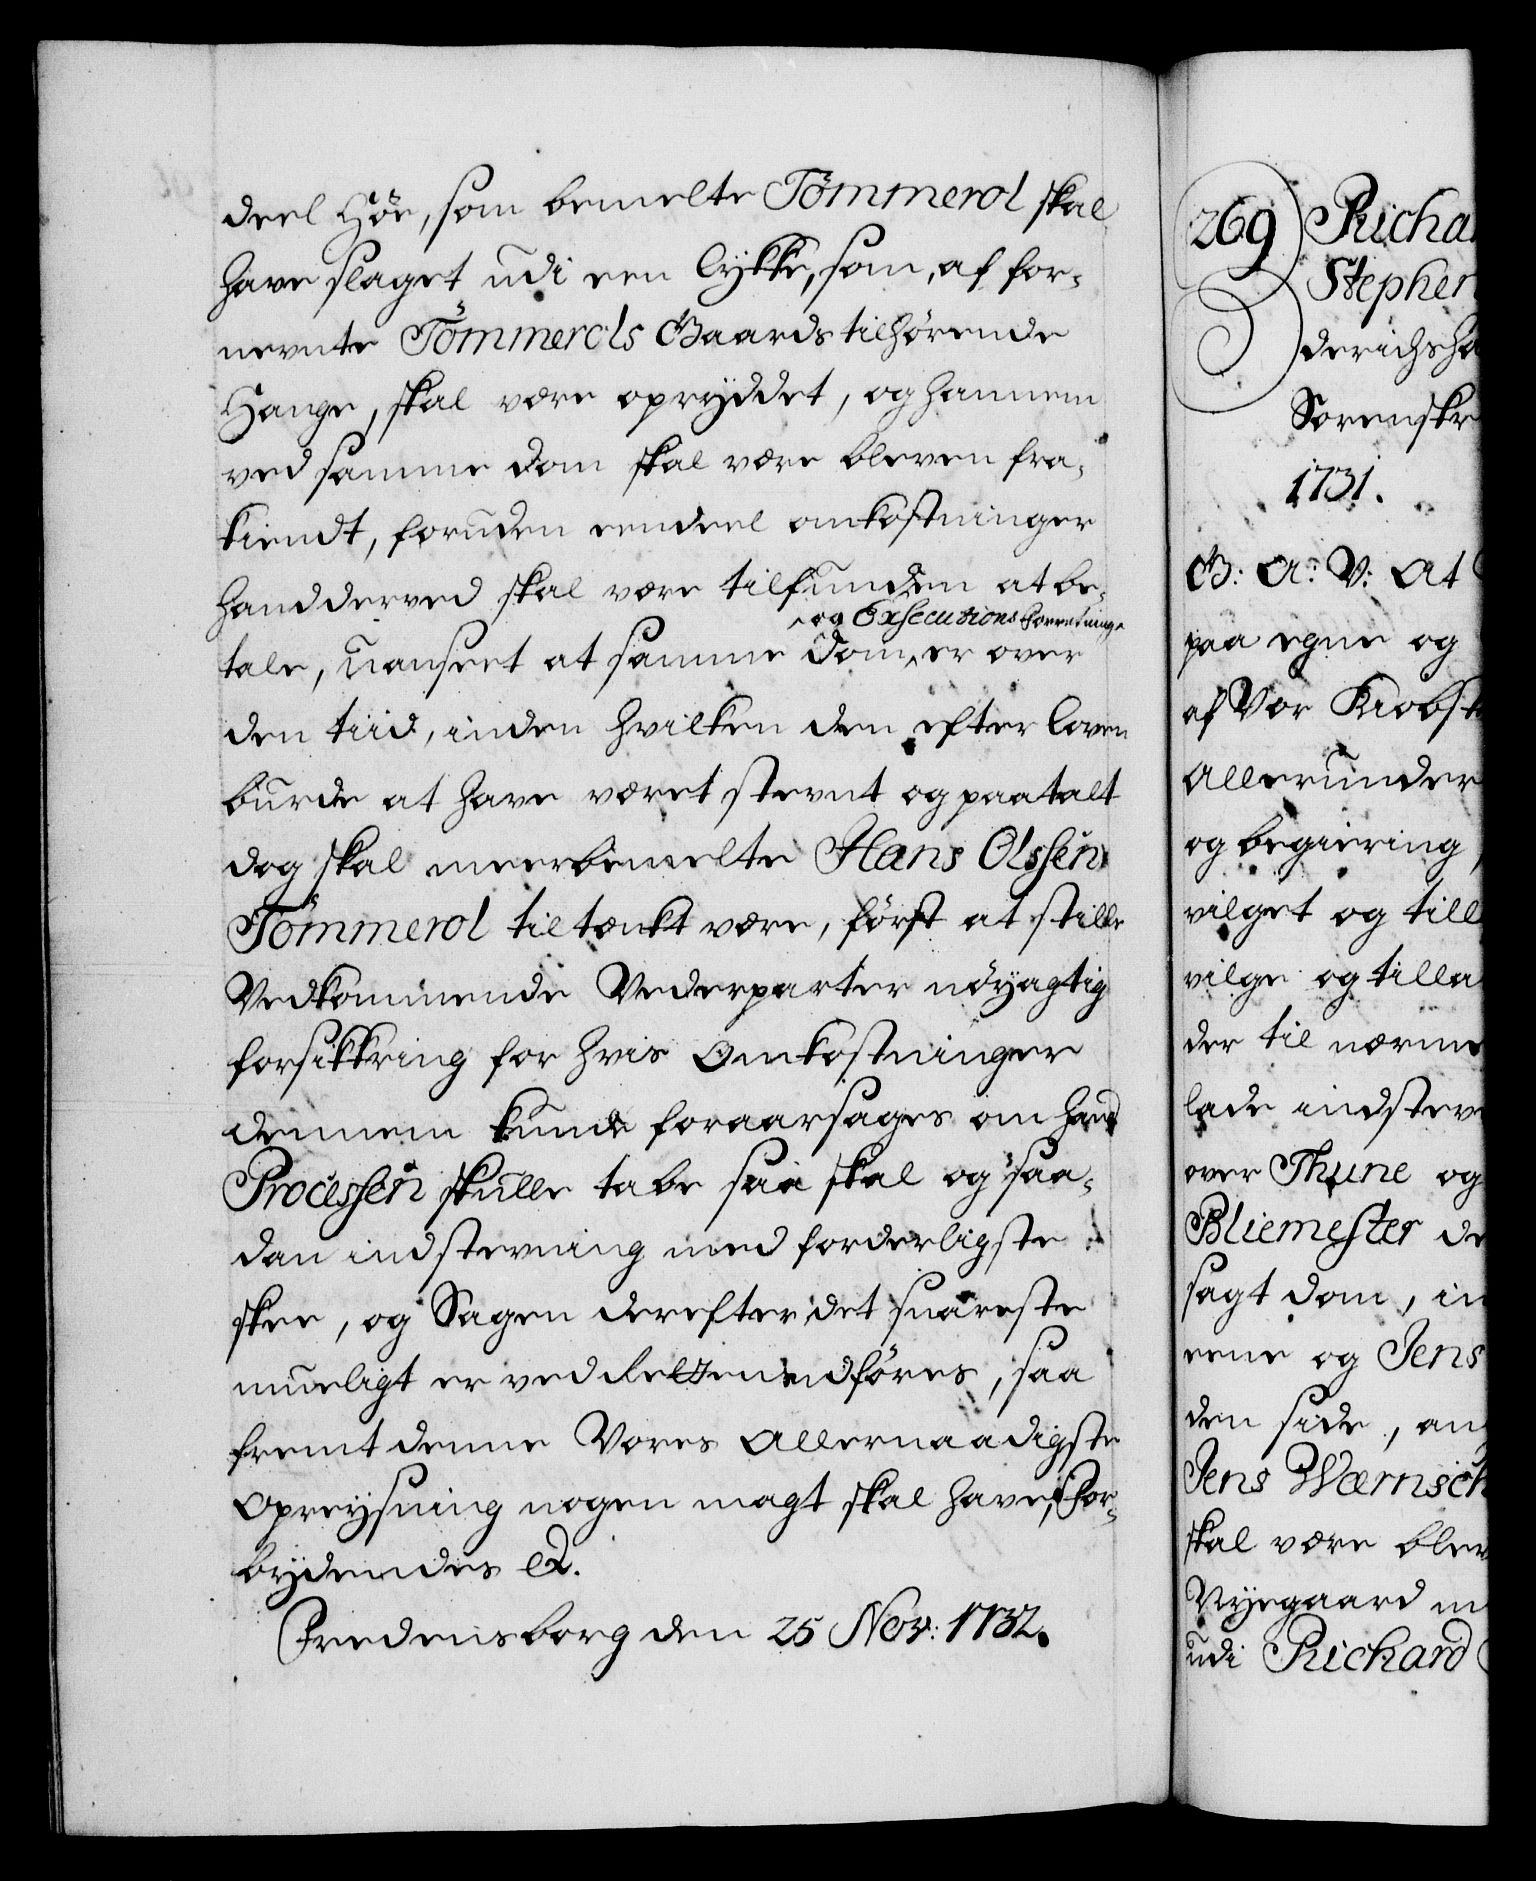 deel Höe, som bemelte Tömmerol skal
have slaget udi een Lykke, som, af for-
nevnte Tömmerols Gaards tilhørende
Hange, skal være opryddet, og hannem
ved samme dom skal være bleven fra-
kiendt, foruden eendeel omkostninger
hand derved skal være tilfunden at be-
tale, uanseet at samme Dom, er over
og Exsecutions Forretninge
den tiid, inden hvilken den efter loven
burde at have været stevnt og paatalt
dog skal meerbemelte Hans Olssen
Tömmerol tiltænkt være, först at stille
Vedkommende Vederparter nöyagtig
forsikkring for hvis Omkostninger
dennem kunde foraarsages om hand
Processen skulle tabe saa skal og saa-
dan indstevning med forderligste
skee, og Sagen derefter det snareste
mueligt er ved Retten udföres, saa
fremt denne Vores Allernaadigste
Opreysning nogen magt skal have, For-
bydendes &.
Fredensborg den 25 Nov: 1732.
269 Richar
Stephen
derichsha
Sorenskr
1731.
G: A: V: At
paa egne og
af Vor Kiøbst
Allerunder
og begiering
vilget og till
vilge og tilla
der til nærme
lade indsteve
over Thune og
Bliemester de
sagt dom, in
eene og Jens
den side, an
Jens Wærnsch
skal være blev
Nyegaard m
udi Richard